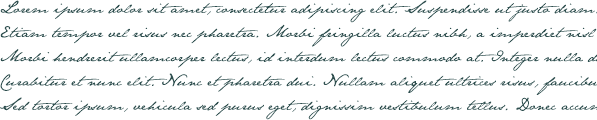 Lorem ipsum dolor sit amet, consectetur adipiscing elit. Suspendisse ut justo diam.
Etiam tempor vel risus nec pharetra. Morbi fringilla luctus nibh, a imperdiet nisl
Morbi hendrerit ullamcorper lectus, id interdum lectus commodo at. Integer nulla d
Curabitur et nunc elit. Nunc et pharetra dui. Nullam aliquet ultrices risus, faucibu
Sed tortor ipsum, vehicula sed purus eget, dignissim vestibulum tellus. Donec accum